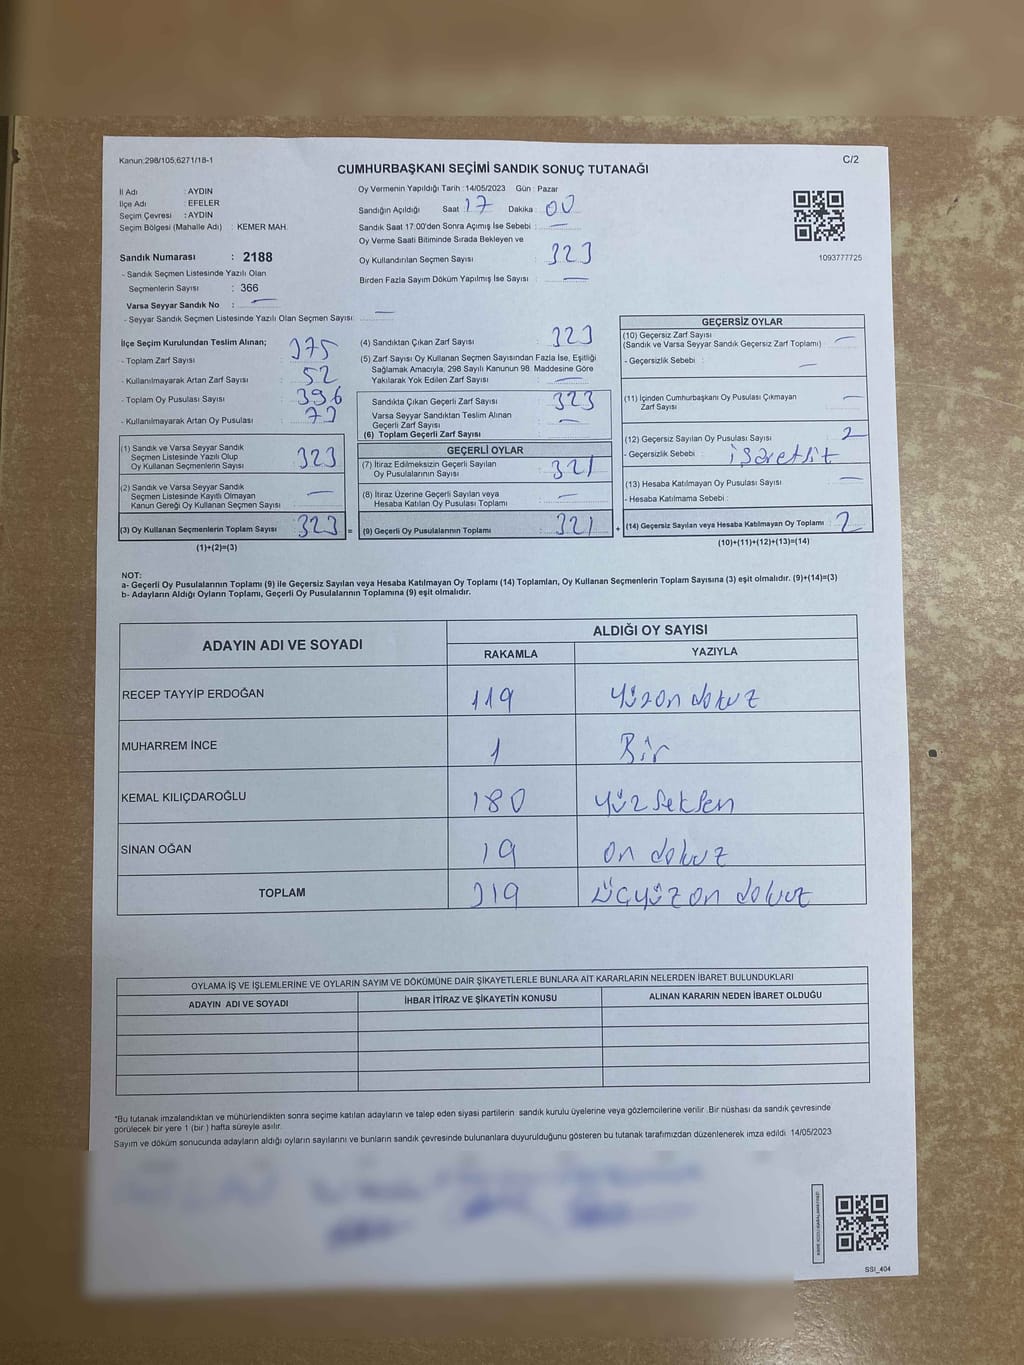 Kanun:298/105;6271/18-1
C/2
CUMHURBAŞKANI SEÇİMİ SANDIK SONUÇ TUTANAĞI
İl Adı : AYDIN
İlçe Adı : EFELER
Seçim Çevresi : AYDIN
Seçim Bölgesi (Mahalle Adı) : KEMER MAH.
Sandık Numarası : 2188
- Sandık Seçmen Listesinde Yazılı Olan
Seçmenlerin Sayısı : 366
Varsa Seyyar Sandık No : —
- Seyyar Sandık Seçmen Listesinde Yazılı Olan Seçmen Sayısı: —
Oy Vermenin Yapıldığı Tarih : 14/05/2023 Gün : Pazar
Sandığın Açıldığı Saat 17 Dakika : 00
Sandık Saat 17:00'den Sonra Açımış İse Sebebi : —
Oy Verme Saati Bitiminde Sırada Bekleyen ve
Oy Kullandırılan Seçmen Sayısı : 323
Birden Fazla Sayım Döküm Yapılmış İse Sayısı : —
1093777725
İlçe Seçim Kurulundan Teslim Alınan;
- Toplam Zarf Sayısı : 375
- Kullanılmayarak Artan Zarf Sayısı : 52
- Toplam Oy Pusulası Sayısı : 396
- Kullanılmayarak Artan Oy Pusulası : 73
(1) Sandık ve Varsa Seyyar Sandık
Seçmen Listesinde Yazılı Olup
Oy Kullanan Seçmenlerin Sayısı : 323
(2) Sandık ve Varsa Seyyar Sandık
Seçmen Listesinde Kayıtlı Olmayan
Kanun Gereği Oy Kullanan Seçmen Sayısı : —
(3) Oy Kullanan Seçmenlerin Toplam Sayısı : 323 =
(1)+(2)=(3)
(4) Sandıktan Çıkan Zarf Sayısı : 323
(5) Zarf Sayısı Oy Kullanan Seçmen Sayısından Fazla İse, Eşitliği
Sağlamak Amacıyla, 298 Sayılı Kanunun 98. Maddesine Göre
Yakılarak Yok Edilen Zarf Sayısı : —
Sandıkta Çıkan Geçerli Zarf Sayısı : 323
Varsa Seyyar Sandıktan Teslim Alınan
Geçerli Zarf Sayısı : —
(6) Toplam Geçerli Zarf Sayısı :
GEÇERLİ OYLAR
(7) İtiraz Edilmeksizin Geçerli Sayılan
Oy Pusulalarının Sayısı : 321
(8) İtiraz Üzerine Geçerli Sayılan veya
Hesaba Katılan Oy Pusulası Toplamı : —
(9) Geçerli Oy Pusulalarının Toplamı : 321 +
GEÇERSİZ OYLAR
(10) Geçersiz Zarf Sayısı
(Sandık ve Varsa Seyyar Sandık Geçersiz Zarf Toplamı) : —
- Geçersizlik Sebebi : —
(11) İçinden Cumhurbaşkanı Oy Pusulası Çıkmayan
Zarf Sayısı : —
(12) Geçersiz Sayılan Oy Pusulası Sayısı : 2
- Geçersizlik Sebebi :
(13) Hesaba Katılmayan Oy Pusulası Sayısı : —
- Hesaba Katılmama Sebebi :
(14) Geçersiz Sayılan veya Hesaba Katılmayan Oy Toplamı : 2
(10)+(11)+(12)+(13)=(14)
NOT:
a- Geçerli Oy Pusulalarının Toplamı (9) ile Geçersiz Sayılan veya Hesaba Katılmayan Oy Toplamı (14) Toplamları, Oy Kullanan Seçmenlerin Toplam Sayısına (3) eşit olmalıdır. (9)+(14)=(3)
b- Adayların Aldığı Oyların Toplamı, Geçerli Oy Pusulalarının Toplamına (9) eşit olmalıdır.
ADAYIN ADI VE SOYADI
ALDIĞI OY SAYISI
RAKAMLA YAZIYLA
RECEP TAYYİP ERDOĞAN 119 yüzon dokuz
MUHARREM İNCE 1 Bir
KEMAL KILIÇDAROĞLU 180 yüz seksen
SİNAN OĞAN 19 on dokuz
TOPLAM 319 üçyüz on dokuz
OYLAMA İŞ VE İŞLEMLERİNE VE OYLARIN SAYIM VE DÖKÜMÜNE DAİR ŞİKAYETLERLE BUNLARA AİT KARARLARIN NELERDEN İBARET BULUNDUKLARI
ADAYIN ADI VE SOYADI İHBAR İTİRAZ VE ŞİKAYETİN KONUSU ALINAN KARARIN NEDEN İBARET OLDUĞU
*Bu tutanak imzalandıktan ve mühürlendikten sonra seçime katılan adayların ve talep eden siyasi partilerin sandık kurulu üyelerine veya gözlemcilerine verilir. Bir nüshası da sandık çevresinde
görülecek bir yere 1 (bir) hafta süreyle asılır.
Sayım ve döküm sonucunda adayların aldığı oyların sayılarını ve bunların sandık çevresinde bulunanlara duyurulduğunu gösteren bu tutanak tarafımızdan düzenlenerek imza edildi. 14/05/2023
SSI_404